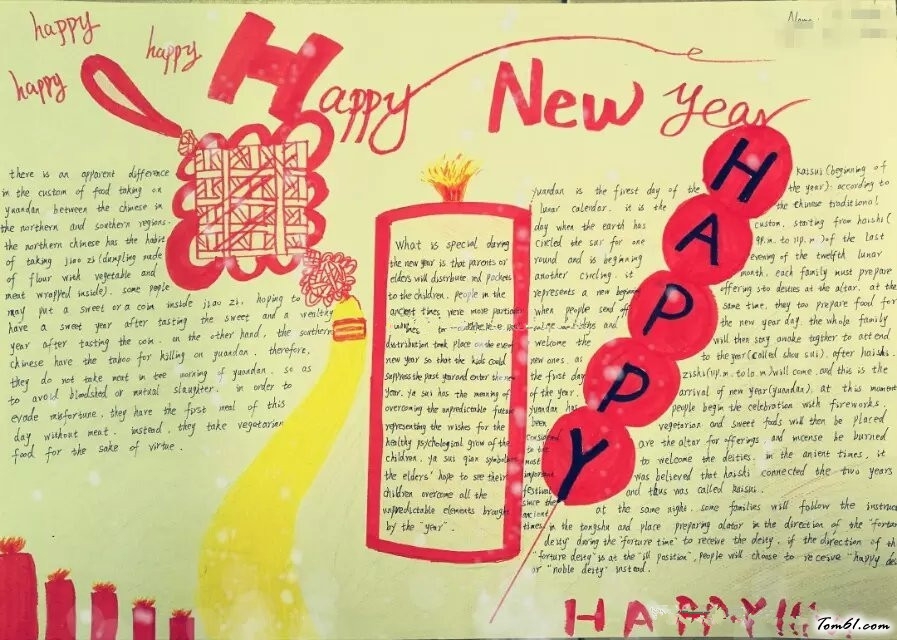 happy
happy
happy
Happy New Year
Name:
there is an apparent difference
in the custom of food taking on
yuandan between the chinese in
the northern and southern regions.
the northern chinese has the habit
of taking jiao zi (dumpling made
of flour with vegetable and
meat wrapped inside). some people
may put a sweet or a coin inside jiao zi, hoping to
have a sweet year after tasting the sweet and a wealthy
year after tasting the coin. on the other hand, the southern
chinese have the taboo for killing on yuandan. therefore,
they do not take meat in the morning of yuandan, so as
to avoid bloodshed or mutual slaughter. in order to
evade misfortune, they have the first meal of this
day without meat. instead, they take vegetarian
food for the sake of virtue.
What is special during
the new year is that parents or
elders will distribute red packets
to the children. people in the
ancient times were more particular
distribution took place on the even
new year so that the kids could
suppress the past year and enter the new
year. ya sui has the meaning of
overcoming the unpredictable future
representing the wishes for the
healthy psychological grow of the
children. ya sui qian symbolize
the elders' hope to see their
children overcome all the
unpredictable elements brought
by the "year".
yuandan is the first day of the
lunar calendar. it is the
day when the earth has
circled the sun for one
round and is beginning
another circling. it
represents a new beginning
when people send off
welcome the
new ones. as
the first day
of the year.
yuandan has
been
considered
to the
most
important
festival
since the
ancient
times.
HAPPY
kaisui (beginning of
the year). according to
the chinese traditional
custom, starting from haishi (
9p.m. to 11p.m.) of the last
evening of the twelfth lunar
month, each family must prepare
offering sto deities at the altar. at the
same time, they too prepare food for
the new year day. the whole family
will then stay awake together to attend
to the year (called shou sui). after haishi,
zishi (11p.m. to 1a.m.) will come, and this is the
arrival of new year (yuandan). at this moment
people begin the celebration with fireworks.
vegetarian and sweet foods will then be placed
are the altar for offerings and incense be burned
to welcome the deities. in the ancient times, it
was believed that haishi connected the two years
and thus was called kaisui.
at the same night, some families will follow the instruc
in the tongshu and place preparing alator in the direction of the "fortun
deity" during the "forture time" to receive the deity. if the direction of th
"forture deity" is at the "ill position", people will choose to receive "happy dei
or "noble deity" instead.
HAPPY!!!
Tom61.com